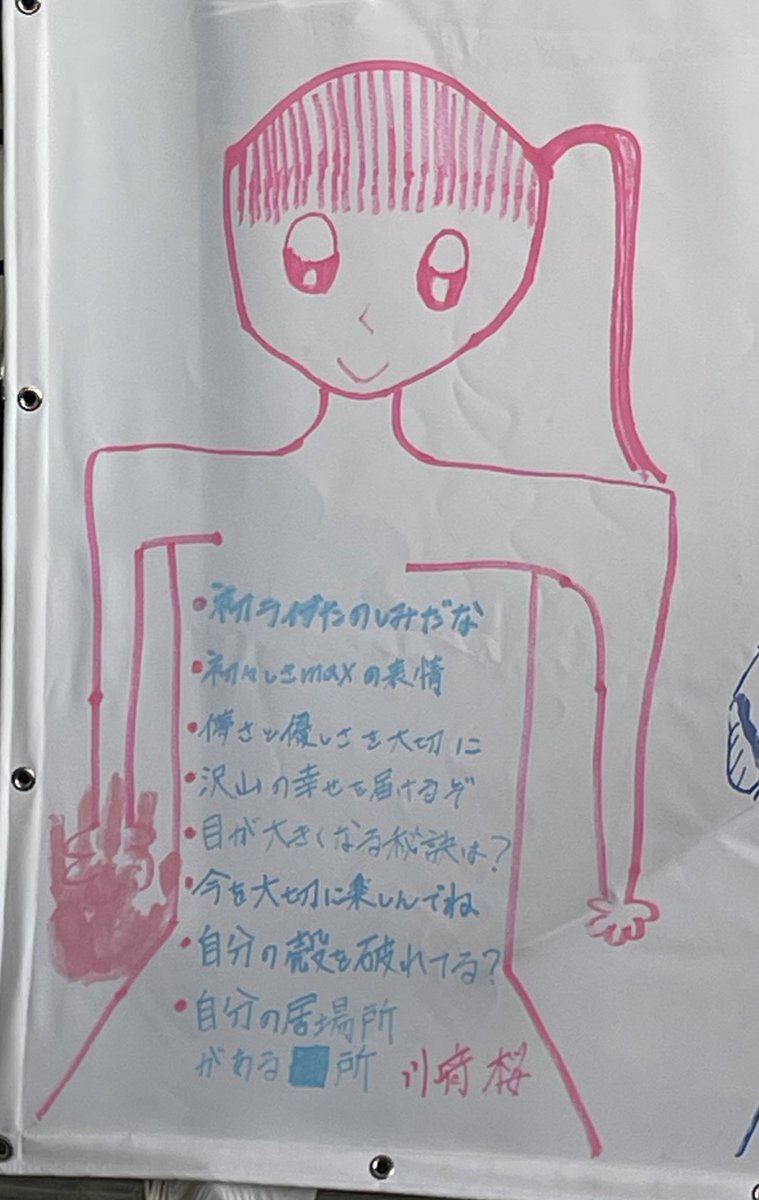 ・初ライブたのしみだな
・初々しさmaxの表情
・儚さと優しさを大切に
・沢山の幸せを届けるぞ
・目が大きくなる秘訣は?
・今を大切に楽しんでね
・自分の殻を破れてる?
・自分の居場所
がある 所 川府 桜